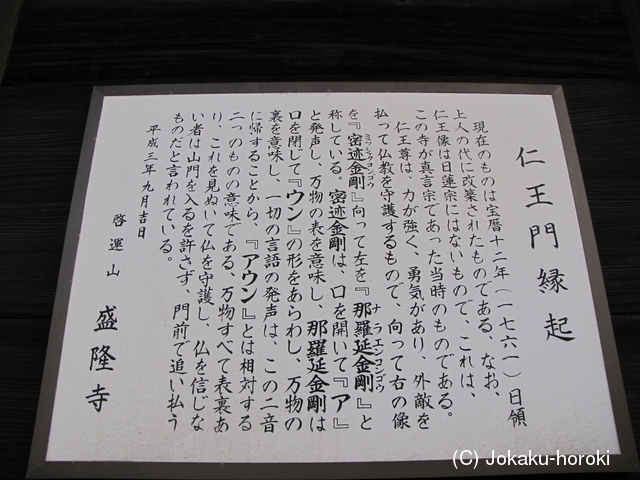 仁王門縁起
現在のものは宝暦十二年（一七六一）日領
上人の代に改築されたものである、なお、
仁王像は日蓮宗にはないもので、これは、
この寺が真言宗であった当時のものである。
仁王尊は、力が強く、勇気があり、外敵を
払って仏教を守護するもので、向って右の像
を『密迹金剛』向って左を『那羅延金剛』と
ミッシャクコンゴウ ナラエンコンゴウ
称している。密迹金剛は、口を開いて『ア』
と発声し、万物の表を意味し、那羅延金剛は
口を閉じて『ウン』の形をあらわし、万物の
裏を意味し、一切の言語の発声は、この二音
に帰することから、『アウン』とは相対する
二つのものの意味である、万物すべて表裏あ
り、これを見ぬいて仏を守護し、仏を信じな
い者は山門を入るを許さず、門前で追い払う
ものだと言われている。
平成三年九月吉日
啓運山 盛隆寺
(C) Jokaku-horoki